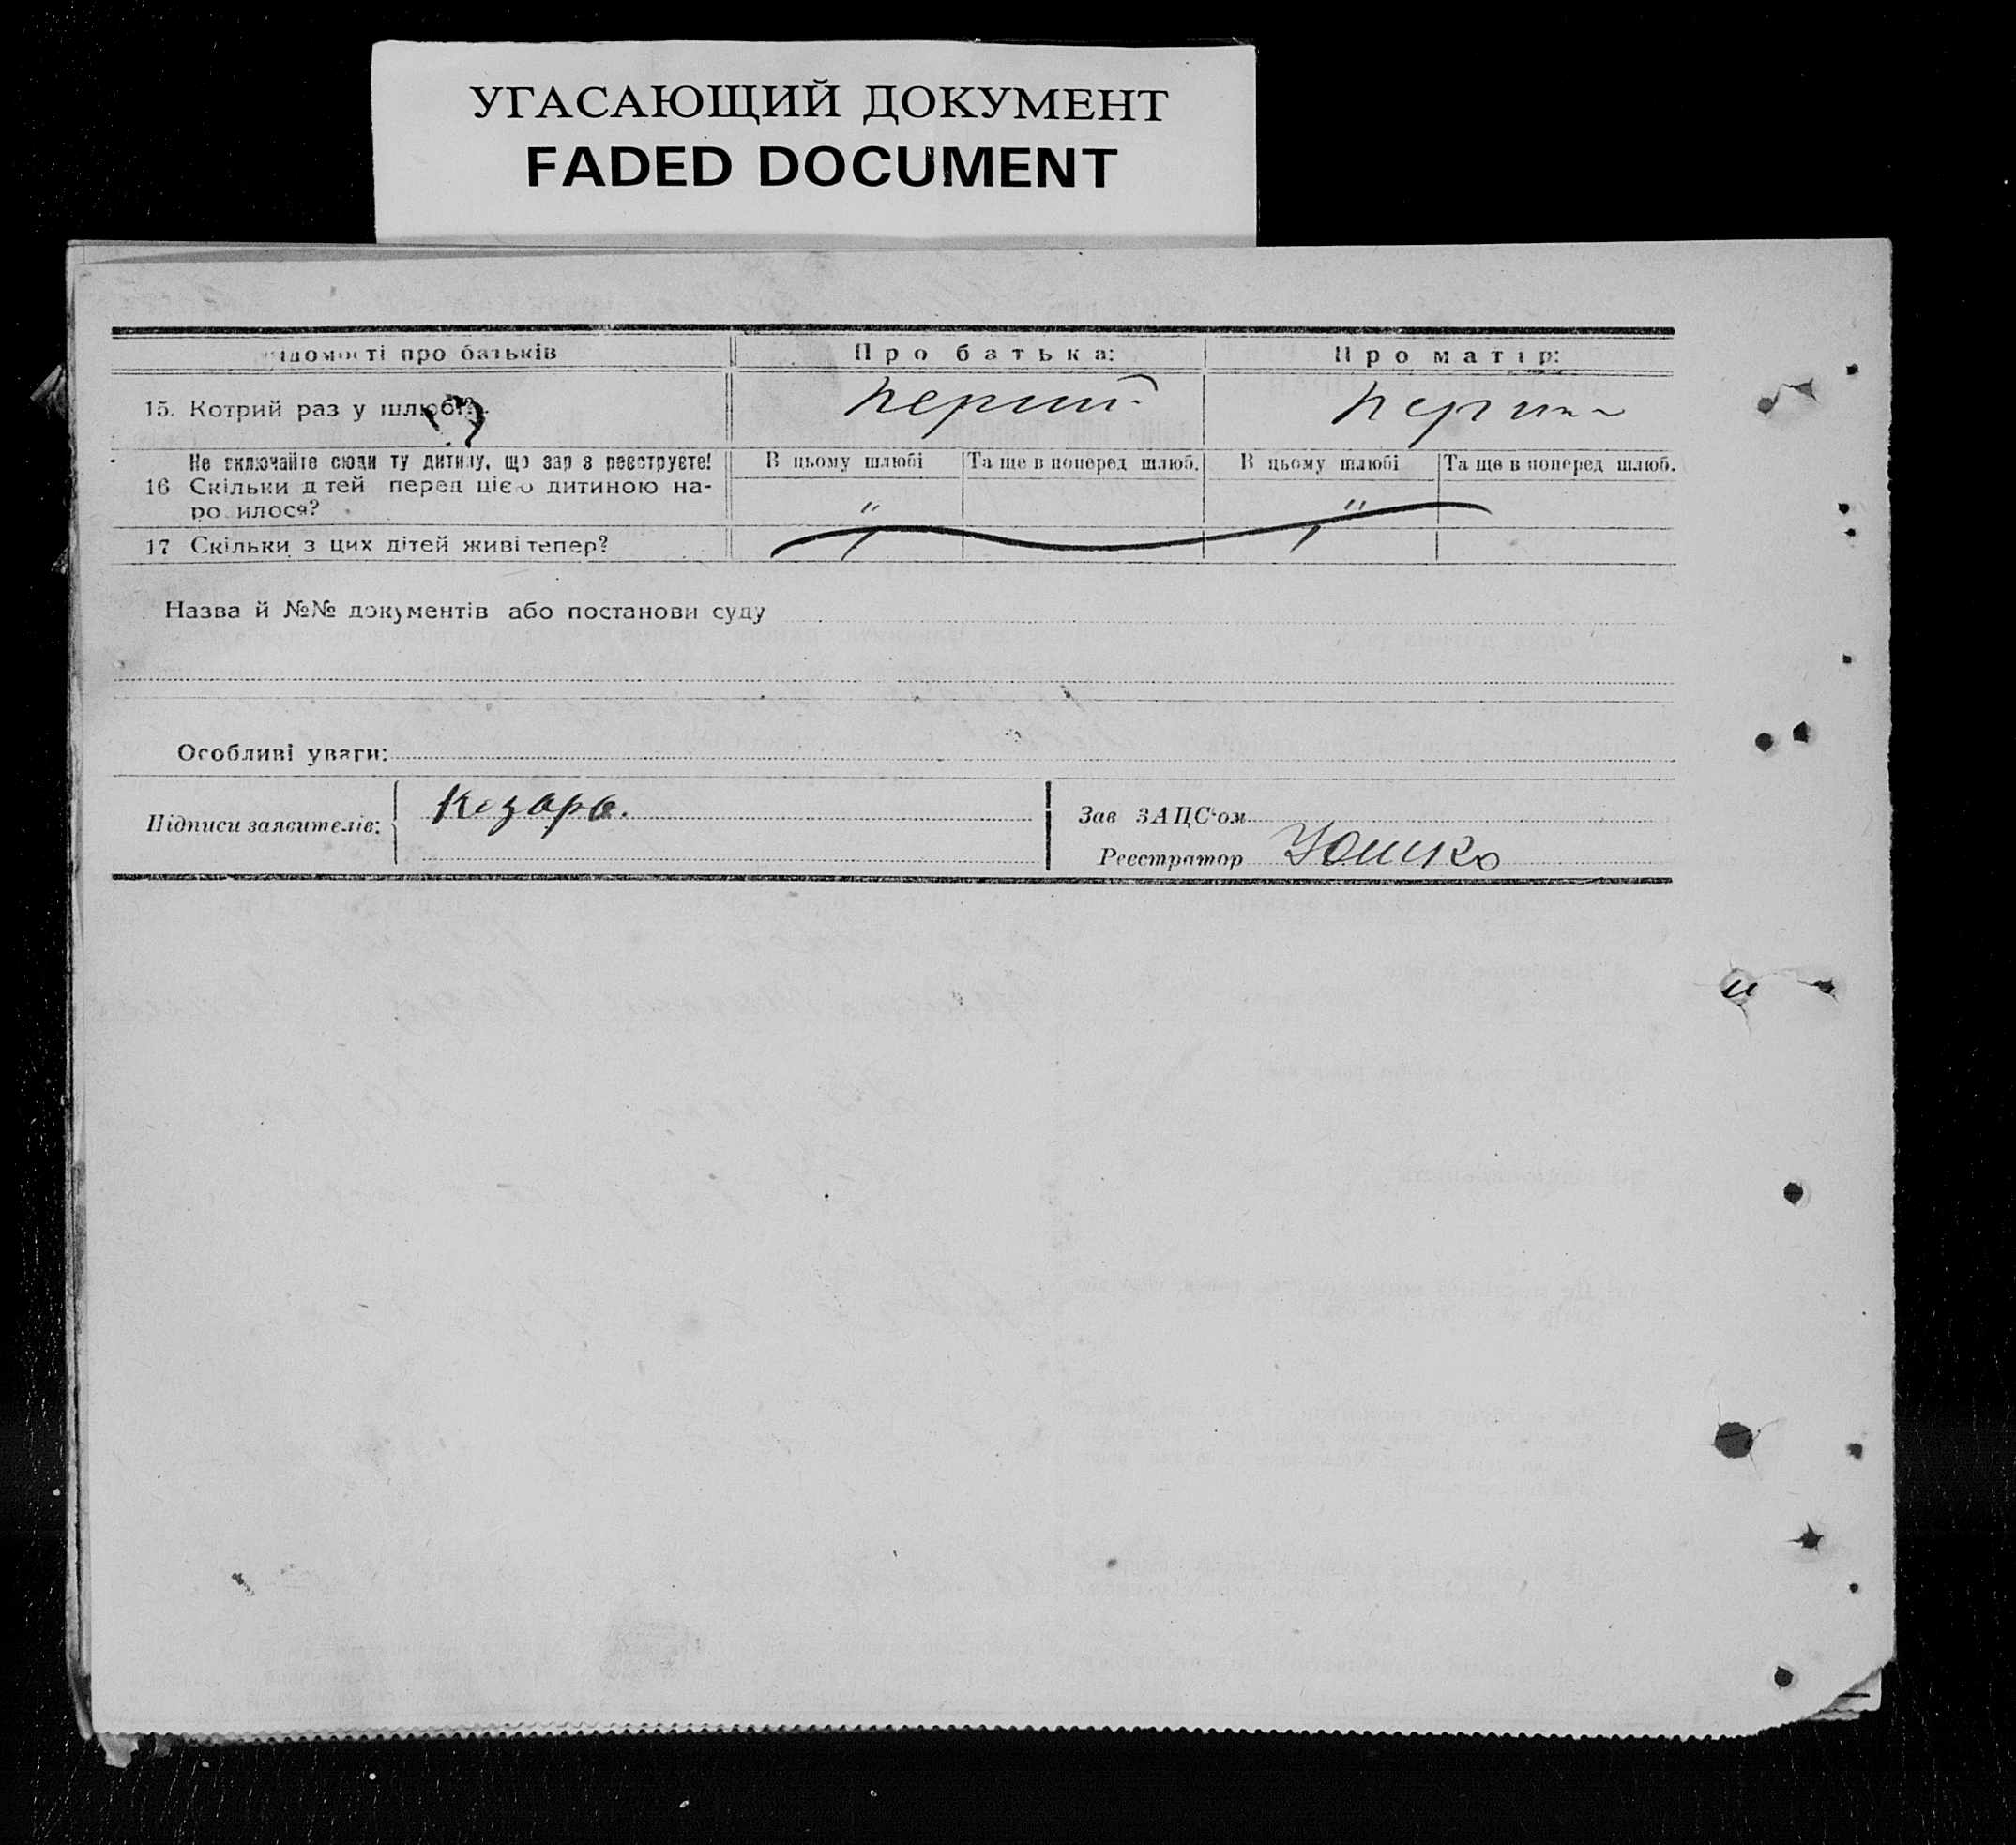 УГАСАЮЩИЙ ДОКУМЕНТ
FADED DOCUMENT
ідомості про батьків
Про батька:
Про матір:
15. Котрий раз у шлюбі?
перший
перший
Не включайте сюди ту дитину, що зар з реєструєте!
В цьому шлюбі
Та ще в поперед шлюб.
В цьому шлюбі
Та ще в поперед шлюб.
16 Скільки д тей перед цією дитиною на-
ро илося?
"
"
17 Скільки з цих дітей живі тепер?
Назва й №№ документів або постанови суду
Особливі уваги:
Підписи заявителів:
Козара.
Зав ЗАЦС'ом
Реєстратор Юшко